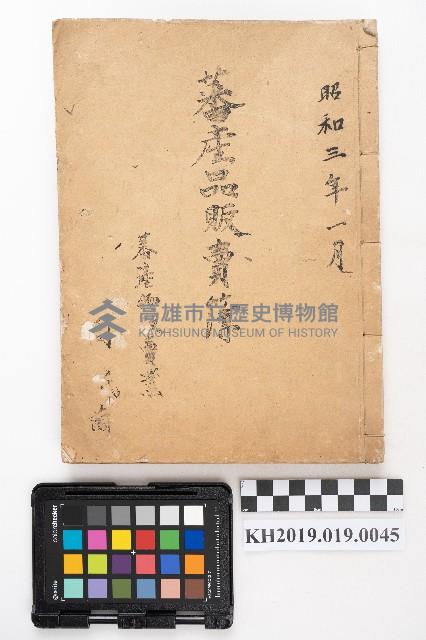 昭和三年一月
蕃產品販賣簿
蕃產物賣業
商
高雄市立歷史博物館
KAOHSIUNG MUSEUM OF HISTORY
KH2019.019.0045
colorchecker
x-rite